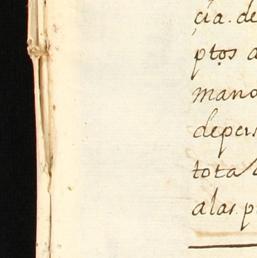 çia. de
ptos a
mano
depers
tota
alas p